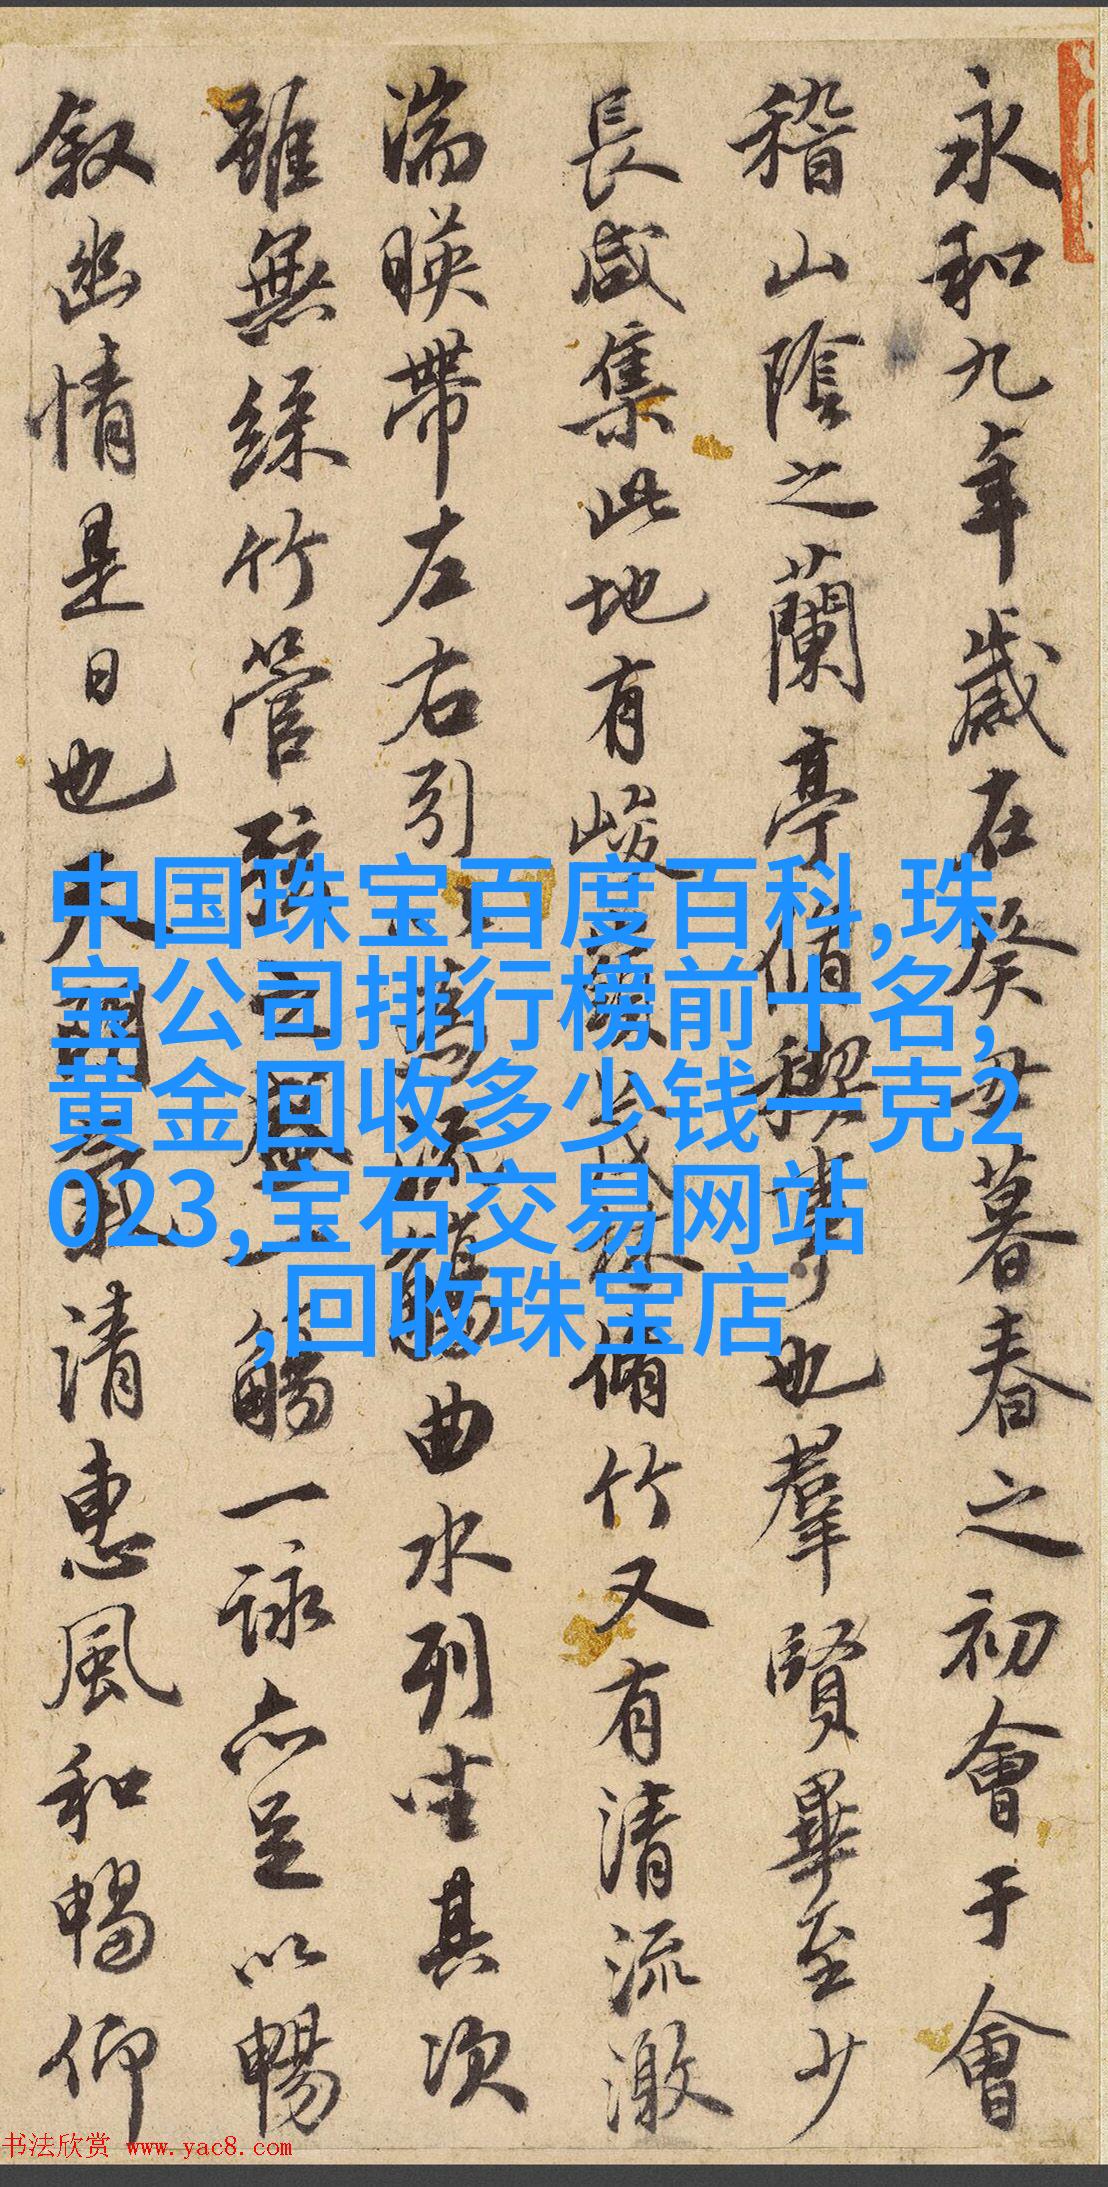 永和九年歲在癸丑暮春之初會于會
稽山陰之蘭亭脩禊事也羣賢畢至少
長咸集此地有峻領茂林脩竹又有清流激
湍暎帶左右引以為流觴曲水列坐其次
雖無絲竹管弦之盛一觴一詠亦足以暢
叙幽情是日也天朗氣清惠風和暢仰
中国珠宝百度百科,珠
宝公司排行榜前十名,
黄金回收多少钱一克2
023,宝石交易网站
,回收珠宝店
书法欣赏 www.yac8.com